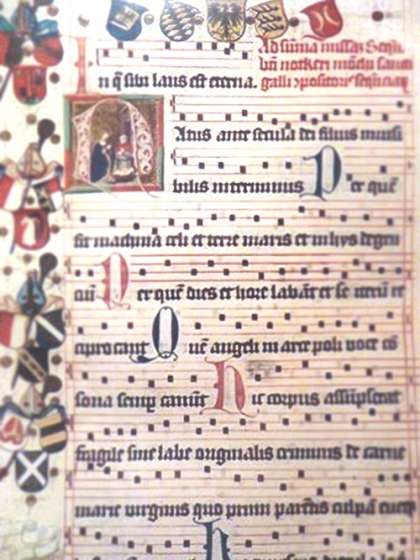 Ad sūma missaz Sequ.
bti notkeri mōchi sancti
In q̄ sibi laus est eterna. galli ꝯpositoris sequēciaꝝ
Natus ante secula dei filius inuisi
bilis interminus Per quē
fit machina celi et terre maris et in hys degen
ciū Per quē dies et hore labāt et se iterū re
ciprocant Quē angeli in arce poli voce cō
sona semp canūt Hic corpus assūpserat
fragile sine labe originalis criminis de carne
marie virginis quo primi parētis culpā